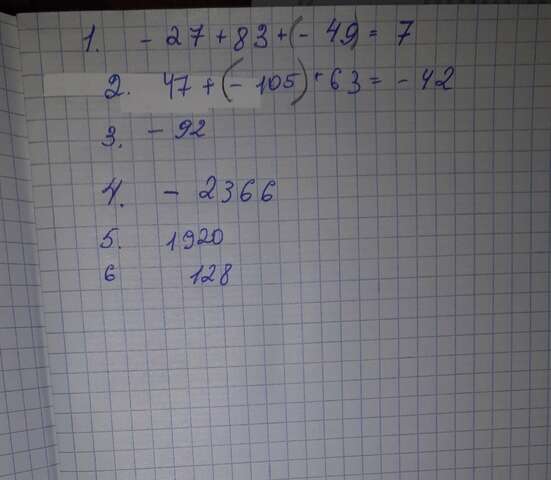 1. - 27 + 83 + (- 49) = 7
2. 47 + (- 105) + 63 = - 42
3. - 92
4. - 2366
5. 1920
6 128